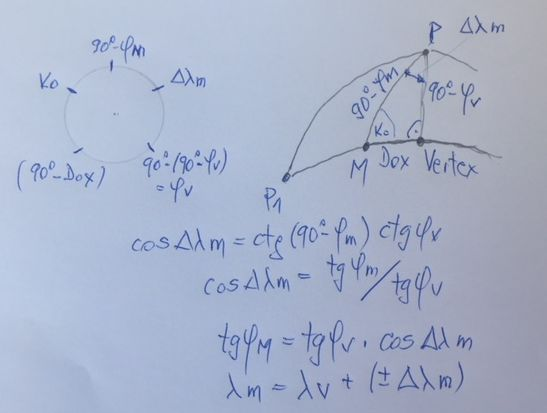 90°-φM
K₀
Δλm
(90°-Dox)
90°-(90°-φv)
= φv
P
Δλm
90°-φm
90°-φv
K₀
M Dox Vertex
P₁
cosΔλm = ctg (90°-φm) ctgφv
cosΔλm = tgφm/tgφv
tgφM = tgφv · cosΔλm
λm = λv + (± Δλm)